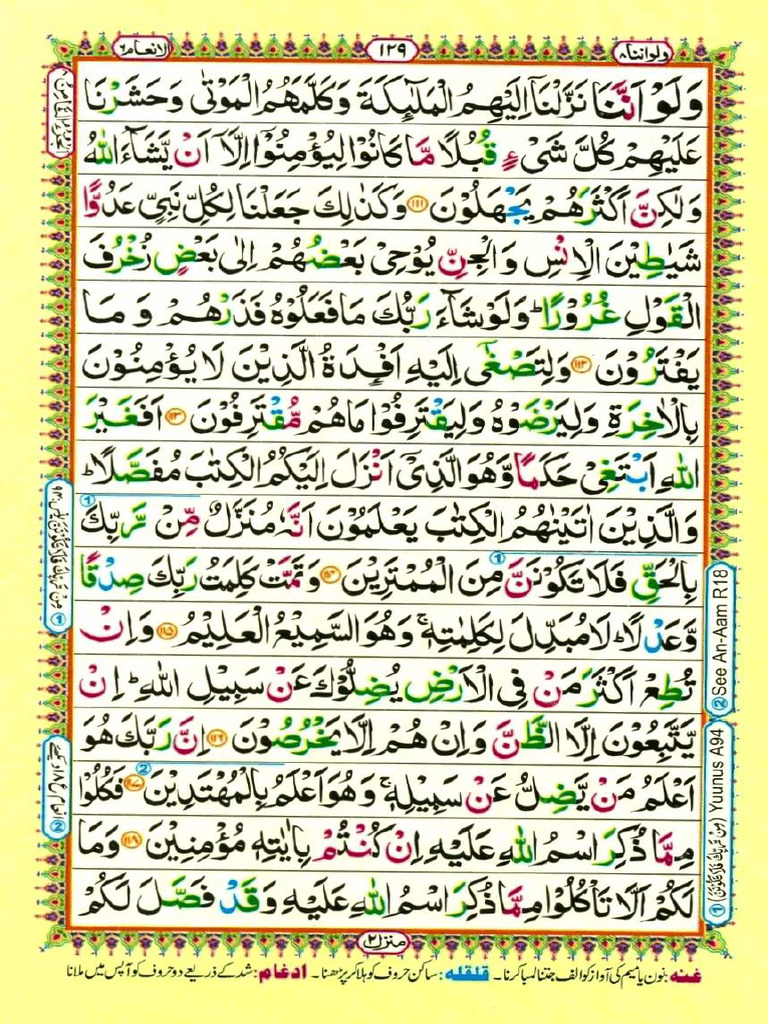 ولواننا ٨
١٢٩
الانعام ٦
وَلَوْ اَنَّنَا نَزَّلْنَاۤ اِلَيْهِمُ الْمَلٰٓئِكَةَ وَكَلَّمَهُمُ الْمَوْتٰى وَحَشَرْنَا
عَلَيْهِمْ كُلَّ شَىْءٍ قُبُلًا مَّا كَانُوْا لِيُؤْمِنُوْۤا اِلَّاۤ اَنْ يَّشَآءَ اللّٰهُ
وَلٰكِنَّ اَكْثَرَهُمْ يَجْهَلُوْنَ ﴿١١١﴾ وَكَذٰلِكَ جَعَلْنَا لِكُلِّ نَبِىٍّ عَدُوًّا
شَيٰطِيْنَ الْاِنْسِ وَالْجِنِّ يُوْحِىْ بَعْضُهُمْ اِلٰى بَعْضٍ زُخْرُفَ
الْقَوْلِ غُرُوْرًا ؕ وَلَوْ شَآءَ رَبُّكَ مَا فَعَلُوْهُ فَذَرْهُمْ وَ مَا
يَفْتَرُوْنَ ﴿١١٢﴾ وَلِتَصْغٰۤى اِلَيْهِ اَفْـِٕدَةُ الَّذِيْنَ لَا يُؤْمِنُوْنَ
بِالْاٰخِرَةِ وَلِيَرْضَوْهُ وَلِيَقْتَرِفُوْا مَا هُمْ مُّقْتَرِفُوْنَ ﴿١١٣﴾ اَفَغَيْرَ
اللّٰهِ اَبْتَغِىْ حَكَمًا وَّهُوَ الَّذِىْۤ اَنْزَلَ اِلَيْكُمُ الْكِتٰبَ مُفَصَّلًا ؕ
وَالَّذِيْنَ اٰتَيْنٰهُمُ الْكِتٰبَ يَعْلَمُوْنَ اَنَّهٗ مُنَزَّلٌ مِّنْ رَّبِّكَ
بِالْحَقِّ فَلَا تَكُوْنَنَّ مِنَ الْمُمْتَرِيْنَ ﴿١١٤﴾ وَتَمَّتْ كَلِمَتُ رَبِّكَ صِدْقًا
وَّعَدْلًا ؕ لَا مُبَدِّلَ لِكَلِمٰتِهٖ ۚ وَهُوَ السَّمِيْعُ الْعَلِيْمُ ﴿١١٥﴾ وَاِنْ
تُطِعْ اَكْثَرَ مَنْ فِى الْاَرْضِ يُضِلُّوْكَ عَنْ سَبِيْلِ اللّٰهِ ؕ اِنْ
يَّتَّبِعُوْنَ اِلَّا الظَّنَّ وَاِنْ هُمْ اِلَّا يَخْرُصُوْنَ ﴿١١٦﴾ اِنَّ رَبَّكَ هُوَ
اَعْلَمُ مَنْ يَّضِلُّ عَنْ سَبِيْلِهٖ ۚ وَهُوَ اَعْلَمُ بِالْمُهْتَدِيْنَ ﴿١١٧﴾ فَكُلُوْا
مِمَّا ذُكِرَ اسْمُ اللّٰهِ عَلَيْهِ اِنْ كُنْتُمْ بِاٰيٰتِهٖ مُؤْمِنِيْنَ ﴿١١٨﴾ وَمَا
لَكُمْ اَلَّا تَاْكُلُوْا مِمَّا ذُكِرَ اسْمُ اللّٰهِ عَلَيْهِ وَقَدْ فَصَّلَ لَكُمْ
② See An-Aam R18
① (مِنْ رَّبِّكَ فَلَا تَكُوْنَنَّ) Yuunus A94
منزل ٢
غنه: نون یا میم کی آواز کو الف جتنا لمبا کرنا۔ قلقله: ساکن حروف کو ہلا کر پڑھنا۔ ادغام: شد کے ذریعے دو حروف کو آپس میں ملانا